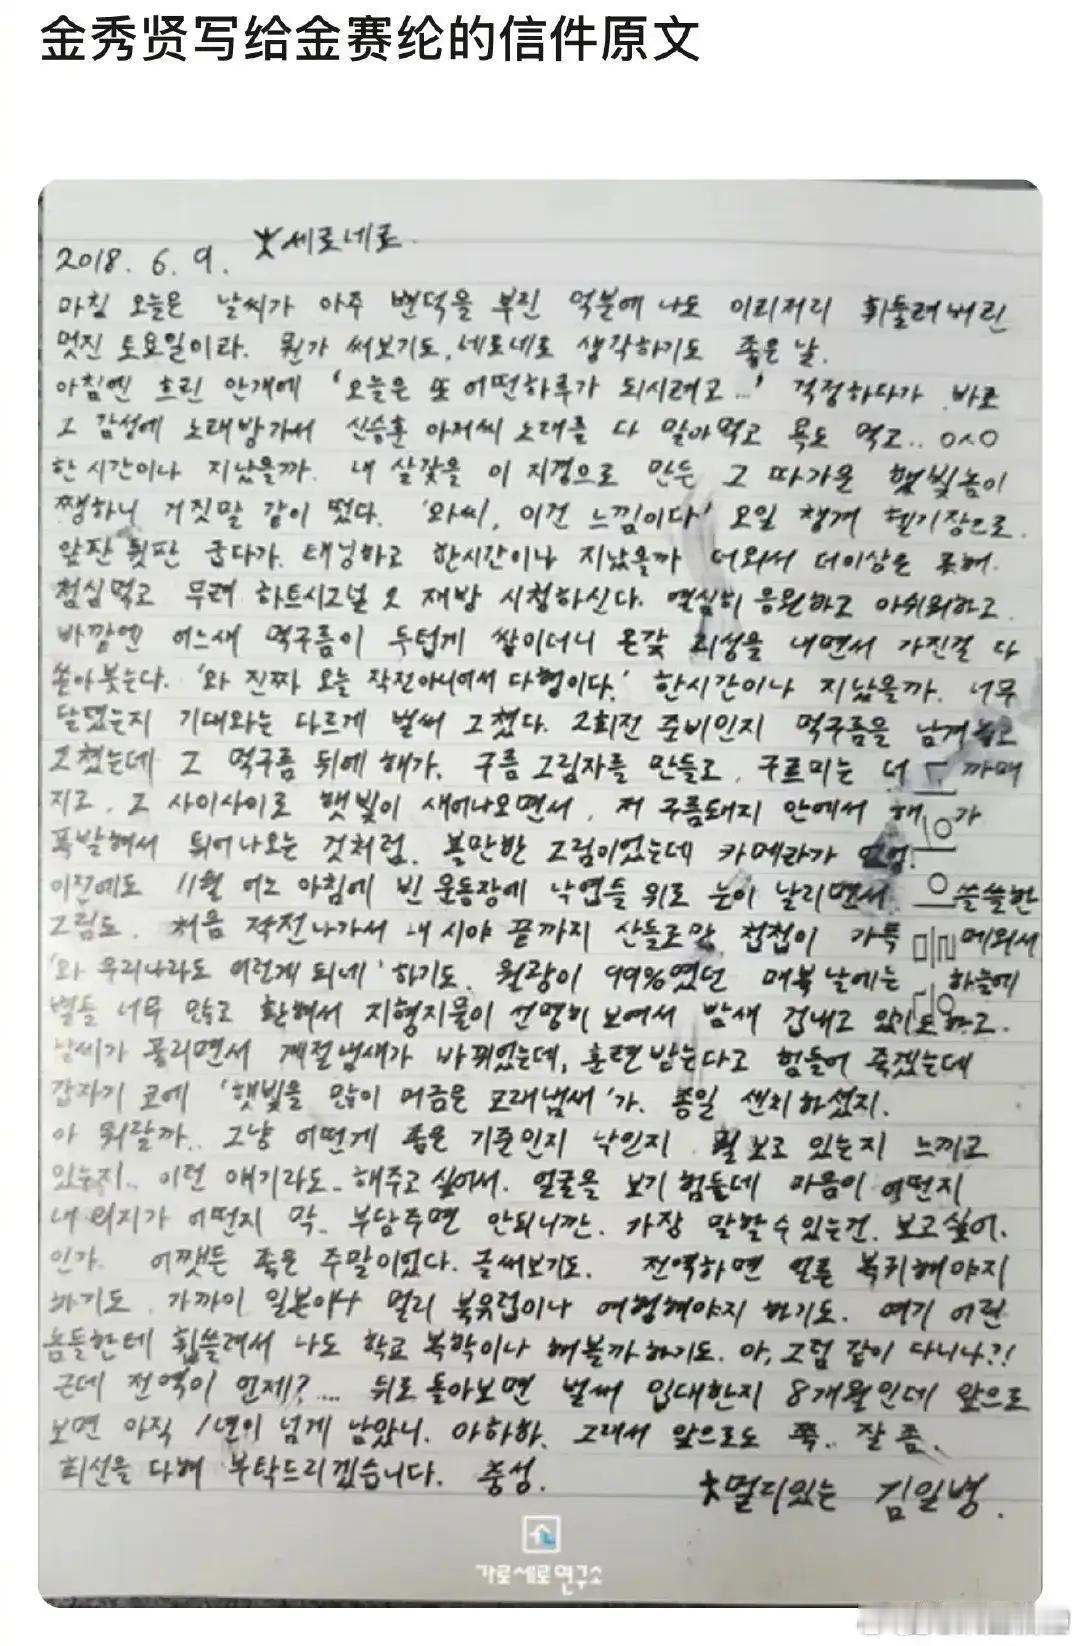 金秀贤写给金赛纶的信件原文
세로네로
2018. 6. 9.
마침 오늘은 날씨가 아주 변덕을 부린 덕분에 나도 이리저리 휘둘려버린
멋진 토요일이라. 뭔가 써보기도, 세로네로 생각하기도 좋은 날.
아침엔 흐린 안개에 '오늘은 또 어떤하루가 되시려고...' 걱정하다가 바로
그 감성에 노래방가서 신승훈 아저씨 노래를 다 말아먹고 욕도 먹고.. ㅇㅅㅇ
한 시간이나 지났을까. 내 살갗을 이 지경으로 만든 그 따가운 햇빛놈이
쨍하니 거짓말 같이 떴다. '와씨, 이건 느낌이다' 오일 챙겨 헬기장으로.
앞판 뒷판 굽다가. 태닝하고 한시간이나 지났을까 더워서 더이상은 못해.
점심먹고 무려 하트시그널 2 재방 시청하신다. 열심히 응원하고 아쉬워하고.
바깥엔 어느새 먹구름이 두텁게 쌓이더니 온갖 괴성을 내면서 가진걸 다
쏟아붓는다. '와 진짜 오늘 작전아니어서 다행이다.' 한시간이나 지났을까. 너무
달렸는지 기대와는 다르게 벌써 그쳤다. 2회전 준비인지 먹구름을 남겨놓고
그쳤는데 그 먹구름 뒤에 해가. 구름 그림자를 만들고, 구르미는 더 까매
지고, 그 사이사이로 햇빛이 새어나오면서, 저 구름돼지 안에서 해가
폭발해서 튀어나오는 것처럼. 볼만한 그림이었는데 카메라가
이전에도 11월 어느 아침에 빈 운동장에 낙엽들 위로 눈이 날리면서 쓸쓸한
그림도. 처음 작전나가서 내 시야 끝까지 산들로만 첩첩이 가득 메워서
'와 우리나라도 이런게 되네' 하기도. 월광이 99%였던 매복날에는 하늘에
별들 너무 많고 환해서 지형지물이 선명히 보여서 밤새 겁내고 있기도하고.
날씨가 풀리면서 계절냄새가 바뀌었는데, 훈련받는다고 힘들어 죽겠는데
갑자기 코에 '햇빛을 많이 머금은 모래냄새'가. 종일 센치하셨지.
아 뭐랄까.. 그냥 어떤게 좋은 기준인지 낙인지 뭘 보고 있는지 느끼고
있는지.. 이런 얘기라도.. 해주고 싶어서. 얼굴을 보기 힘들데 마음이 어떤지
내 의지가 어떤지 막. 부담주면 안되니깐. 가장 말할수있는건. 보고싶어.
인가. 어쨋든 좋은 주말이었다. 글써보기도. 전역하면 얼른 복귀해야지
하기도. 가까이 일본이나 멀리 북유럽이나 여행해야지 하기도. 여기 어린
놈들한테 휩쓸려서 나도 학교 복학이나 해볼까하기도. 아, 그럼 같이 다니나?!
근데 전역이 언제?.... 뒤로 돌아보면 벌써 입대한지 8개월인데 앞으로
보면 아직 1년이 넘게 남았니. 아하하. 그래서 앞으로도 쭉.. 잘 좀.
최선을 다해 부탁드리겠습니다. 충성.
멀디있는 김일병.
가로세로연구소